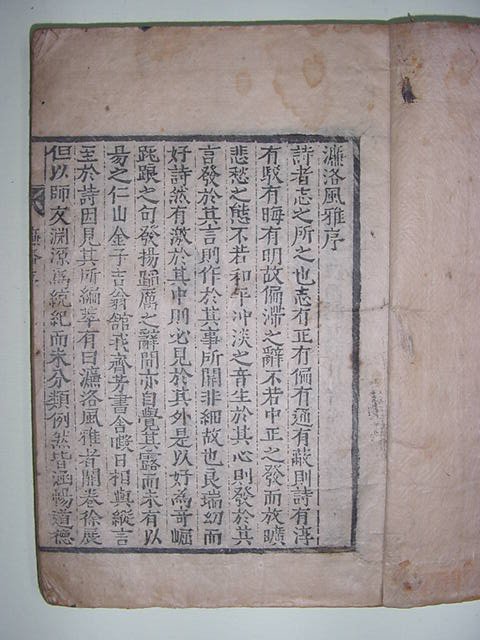 濂洛風雅序
詩者志之所之也志有正有偏有通有蔽則詩有淳
有駁有晦有明故偏滯之辭不若中正之發而放曠
悲愁之態不若和平沖淡之音生於其心則發於其
言發於其言則作於其事所關非細故也良瑞幼而
好詩然有激於其中則必見於其外是以好為奇崛
跪跟之句發揚蹈厲之辭間亦自覺其露而未有以
易之仁山金子吉翁館我齊芳書舍暇日相與縱言
至於詩因見其所編萃有曰濂洛風雅者開卷徐展
但以師友淵源為統紀而未分類例然皆涵暢道德
濂洛序